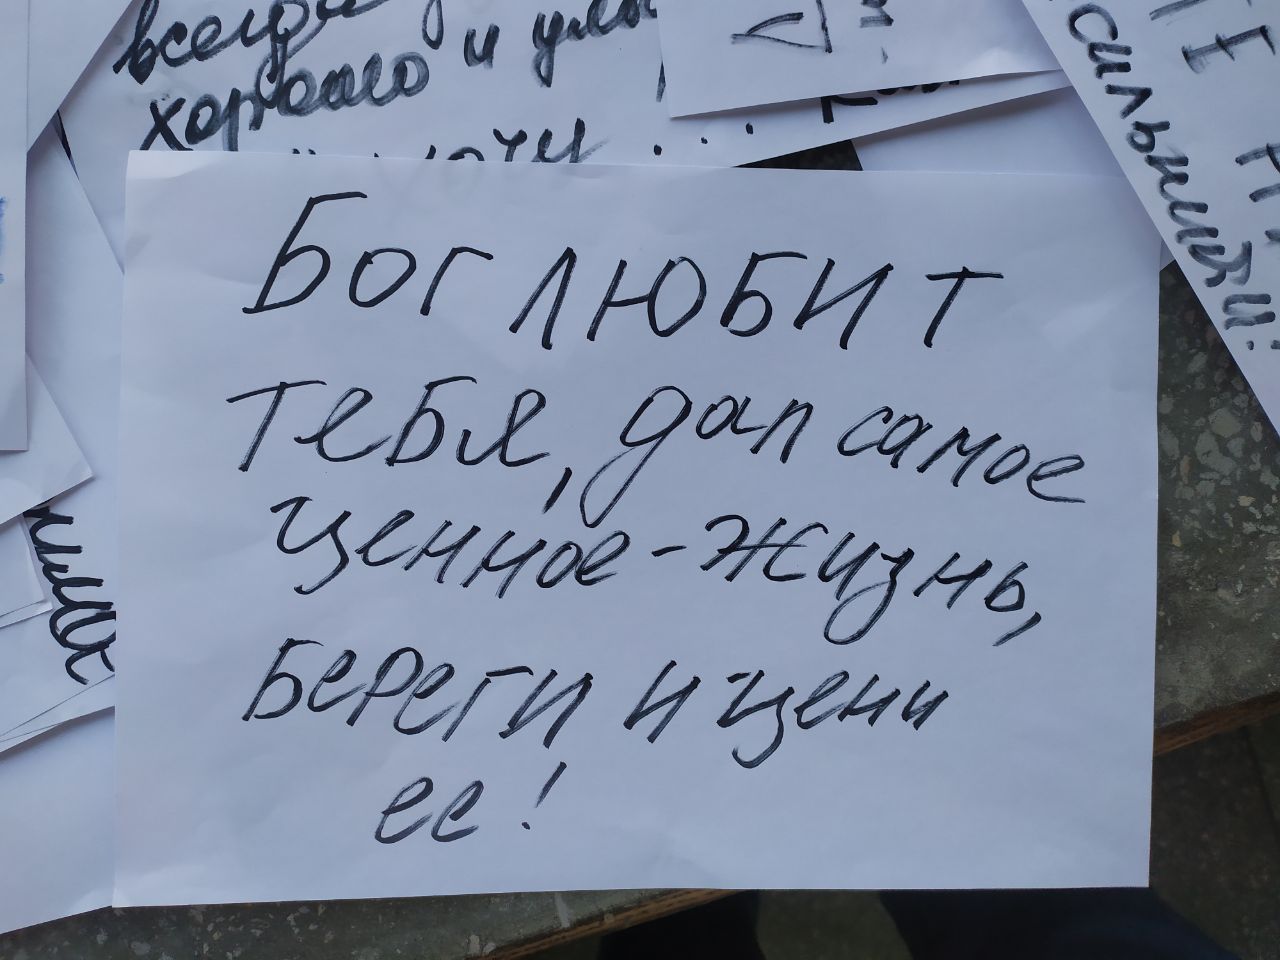 всегда
хорошего и улы
хочу ...
сильный!
Бог любит
тебя, дал самое
ценное - жизнь,
береги и цени
ее!